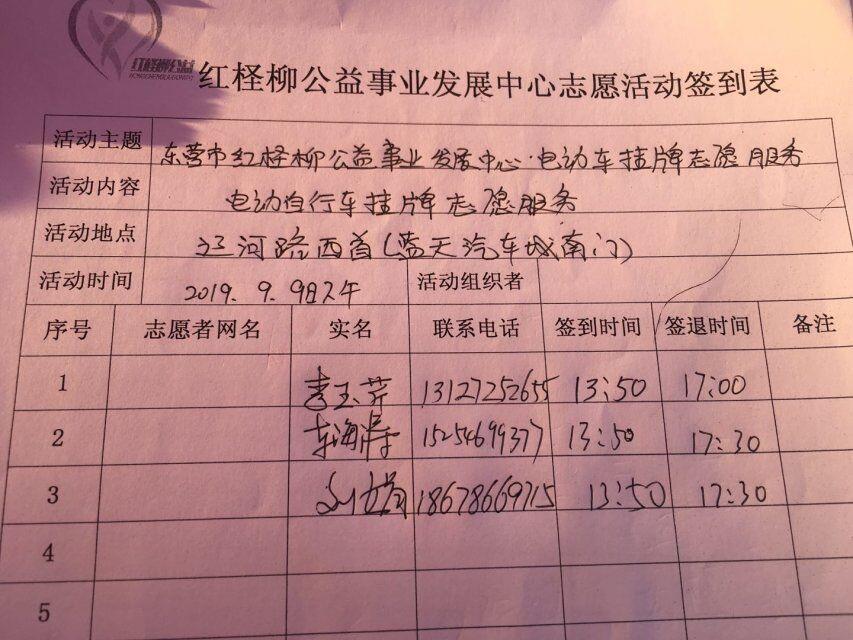 红柽柳公益
红柽柳公益事业发展中心志愿活动签到表
活动主题 东营市红柽柳公益事业发展中心·电动车挂牌志愿服务
活动内容 电动自行车挂牌志愿服务
活动地点 运河路西首(蓝天汽车城南门)
活动时间 2019.9.9日下午 活动组织者
序号 志愿者网名 实名 联系电话 签到时间 签退时间 备注
1 李玉芹 13127252655 13:50 17:00
2 15254699377 13:50 17:30
3 18678669715 13:50 17:30
4
5